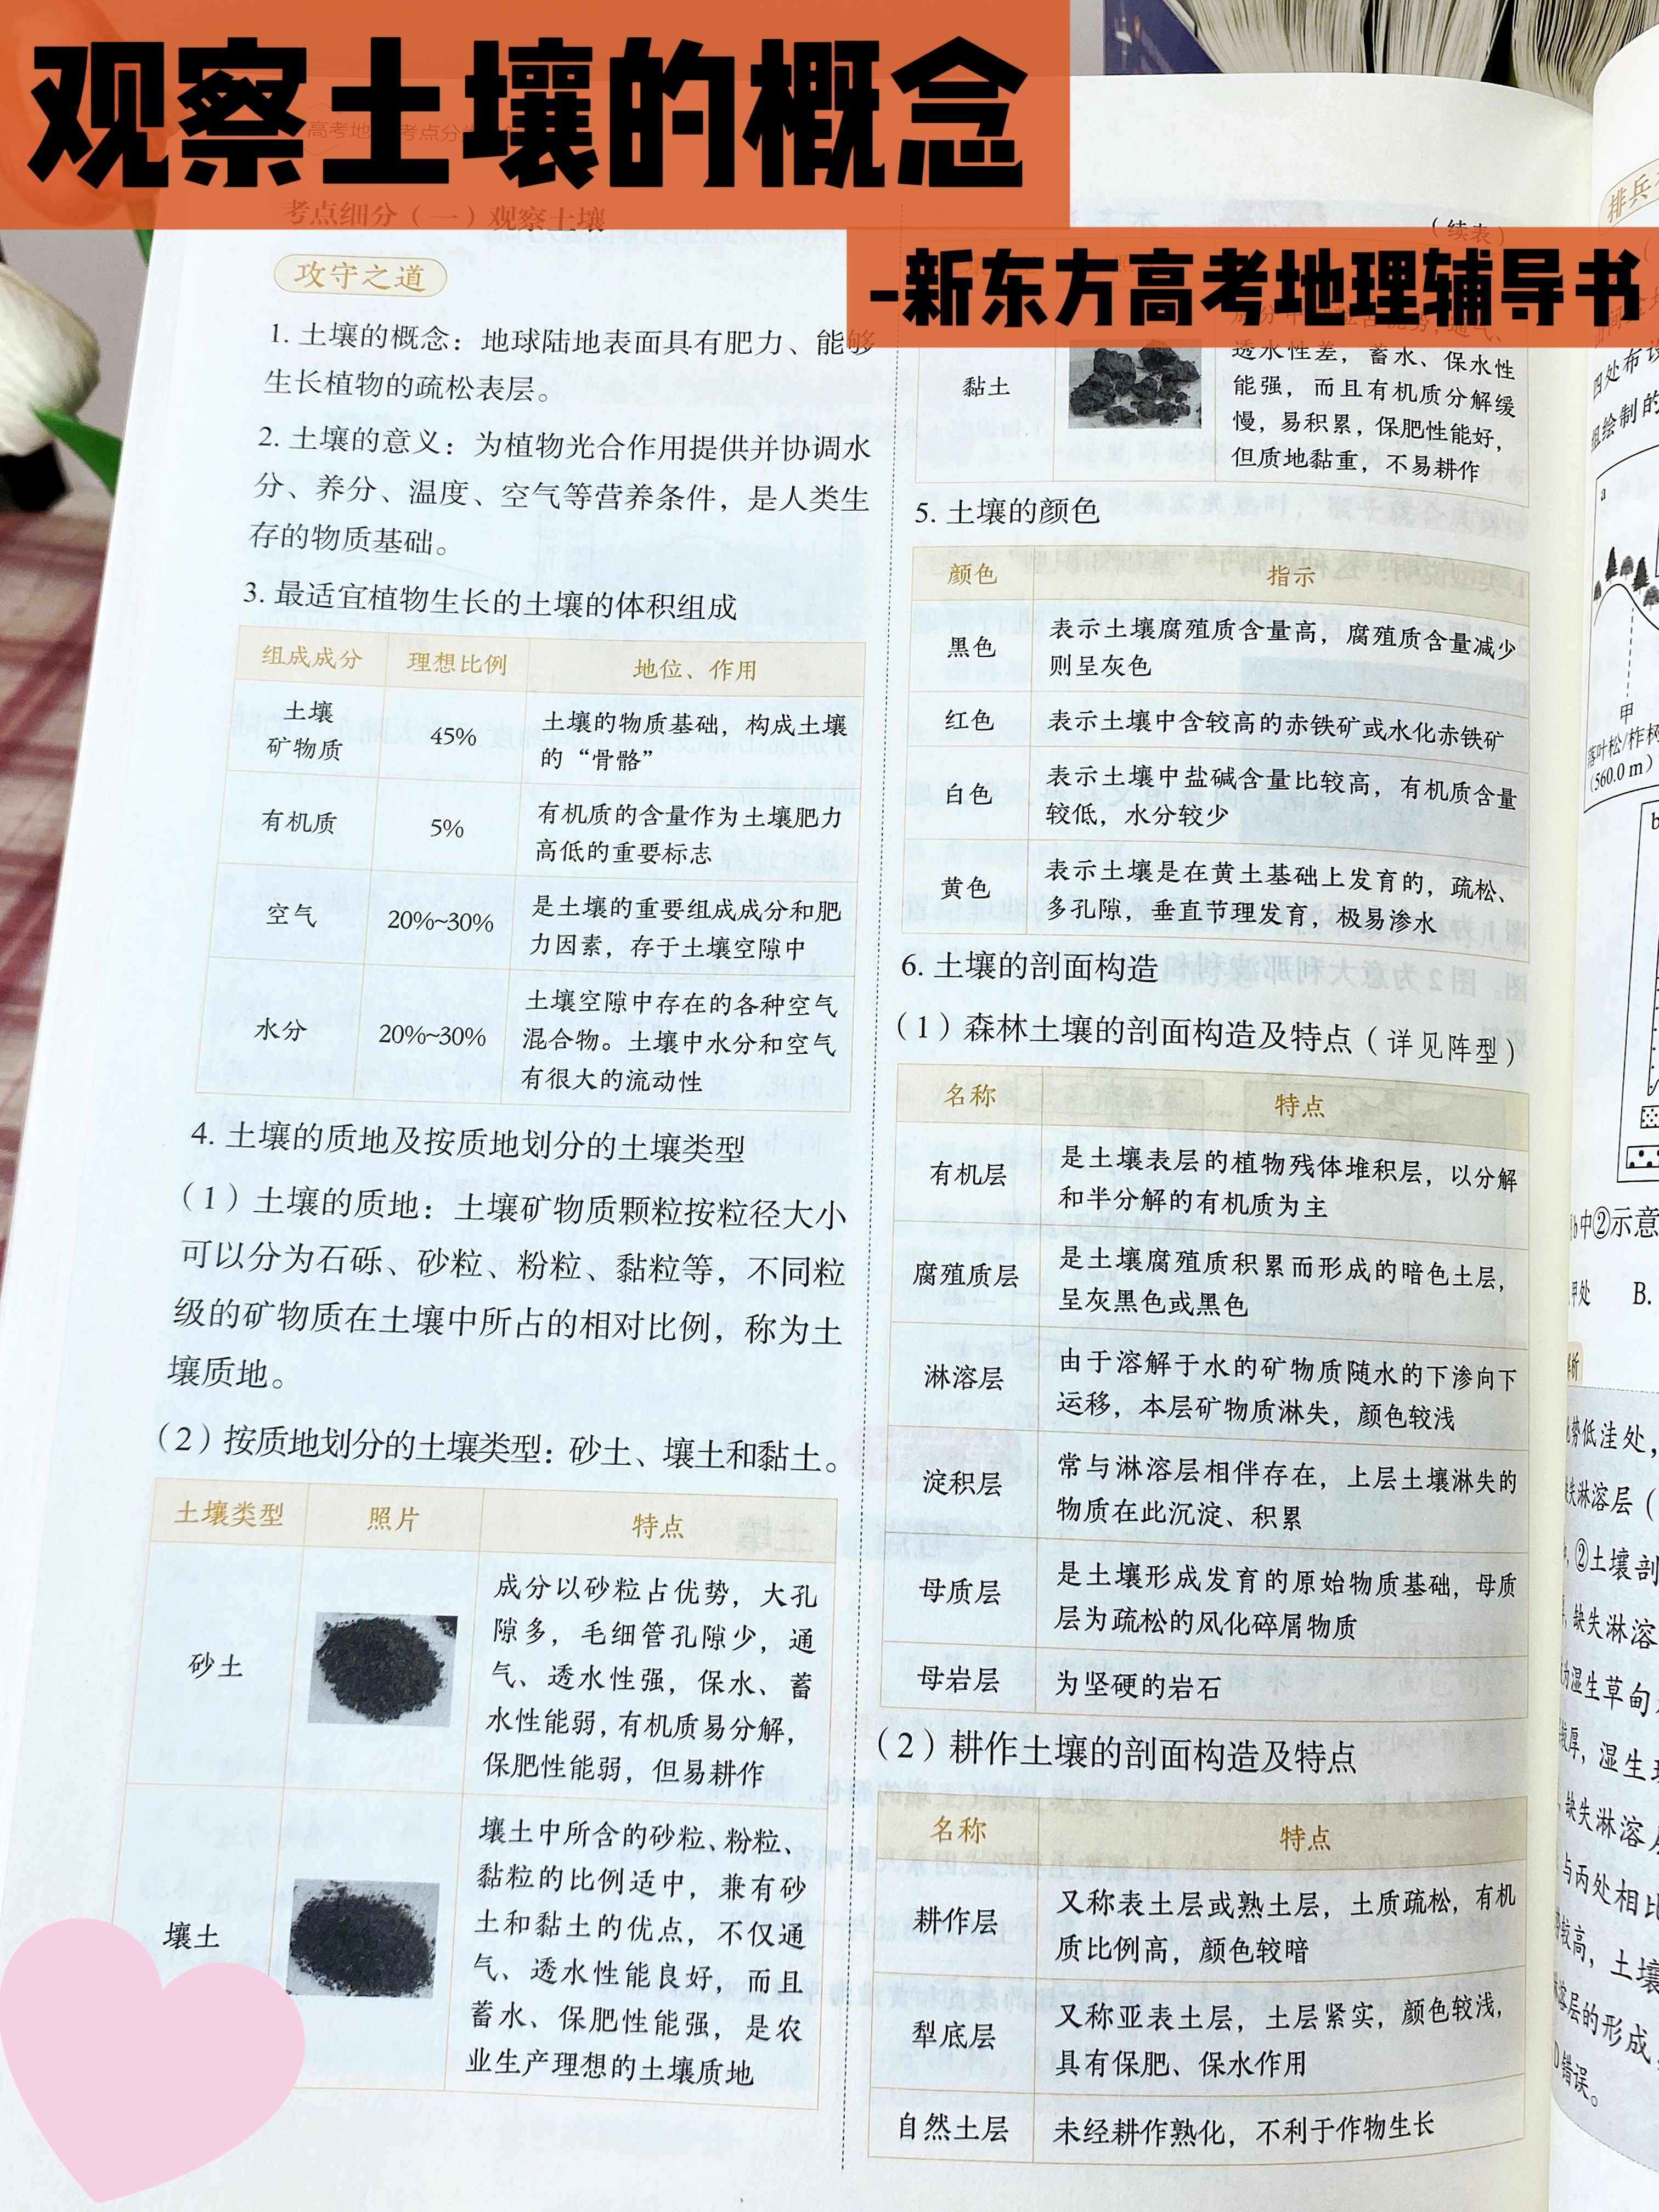 观察土壤的概念
-新东方高考地理辅导书
考点细分（一）观察土壤
攻守之道
1. 土壤的概念：地球陆地表面具有肥力、能够
生长植物的疏松表层。
2. 土壤的意义：为植物光合作用提供并协调水
分、养分、温度、空气等营养条件，是人类生
存的物质基础。
3. 最适宜植物生长的土壤的体积组成
组成成分 理想比例 地位、作用
土壤
矿物质
45%
土壤的物质基础，构成土壤
的“骨骼”
有机质
5%
有机质的含量作为土壤肥力
高低的重要标志
空气
20%~30%
是土壤的重要组成成分和肥
力因素，存于土壤空隙中
水分
20%~30%
土壤空隙中存在的各种空气
混合物。土壤中水分和空气
有很大的流动性
4. 土壤的质地及按质地划分的土壤类型
（1）土壤的质地：土壤矿物质颗粒按粒径大小
可以分为石砾、砂粒、粉粒、黏粒等，不同粒
级的矿物质在土壤中所占的相对比例，称为土
壤质地。
（2）按质地划分的土壤类型：砂土、壤土和黏土。
土壤类型 照片 特点
砂土
成分以砂粒占优势，大孔
隙多，毛细管孔隙少，通
气、透水性强，保水、蓄
水性能弱，有机质易分解，
保肥性能弱，但易耕作
壤土
壤土中所含的砂粒、粉粒、
黏粒的比例适中，兼有砂
土和黏土的优点，不仅通
气、透水性能良好，而且
蓄水、保肥性能强，是农
业生产理想的土壤质地
（续表）
黏土
透水性差，蓄水、保水性
能强，而且有机质分解缓
慢，易积累，保肥性能好，
但质地黏重，不易耕作
5. 土壤的颜色
颜色 指示
黑色
表示土壤腐殖质含量高，腐殖质含量减少
则呈灰色
红色
表示土壤中含较高的赤铁矿或水化赤铁矿
白色
表示土壤中盐碱含量比较高，有机质含量
较低，水分较少
黄色
表示土壤是在黄土基础上发育的，疏松、
多孔隙，垂直节理发育，极易渗水
6. 土壤的剖面构造
（1）森林土壤的剖面构造及特点（详见阵型）
名称 特点
有机层
是土壤表层的植物残体堆积层，以分解
和半分解的有机质为主
腐殖质层
是土壤腐殖质积累而形成的暗色土层，
呈灰黑色或黑色
淋溶层
由于溶解于水的矿物质随水的下渗向下
运移，本层矿物质淋失，颜色较浅
淀积层
常与淋溶层相伴存在，上层土壤淋失的
物质在此沉淀、积累
母质层
是土壤形成发育的原始物质基础，母质
层为疏松的风化碎屑物质
母岩层
为坚硬的岩石
（2）耕作土壤的剖面构造及特点
名称 特点
耕作层
又称表土层或熟土层，土质疏松，有机
质比例高，颜色较暗
犁底层
又称亚表土层，土层紧实，颜色较浅，
具有保肥、保水作用
自然土层
未经耕作熟化，不利于作物生长
排兵
四处布设
组绘制的
a
甲
落叶松/柞树
（560.0 m）
b
b中②示意
甲处 B.
势低洼处，
缺失淋溶层（
②土壤剖
缺失淋溶
为湿生草甸
厚，湿生
缺失淋溶层
与丙处相比
较高，土壤
溶层的形成
D错误。